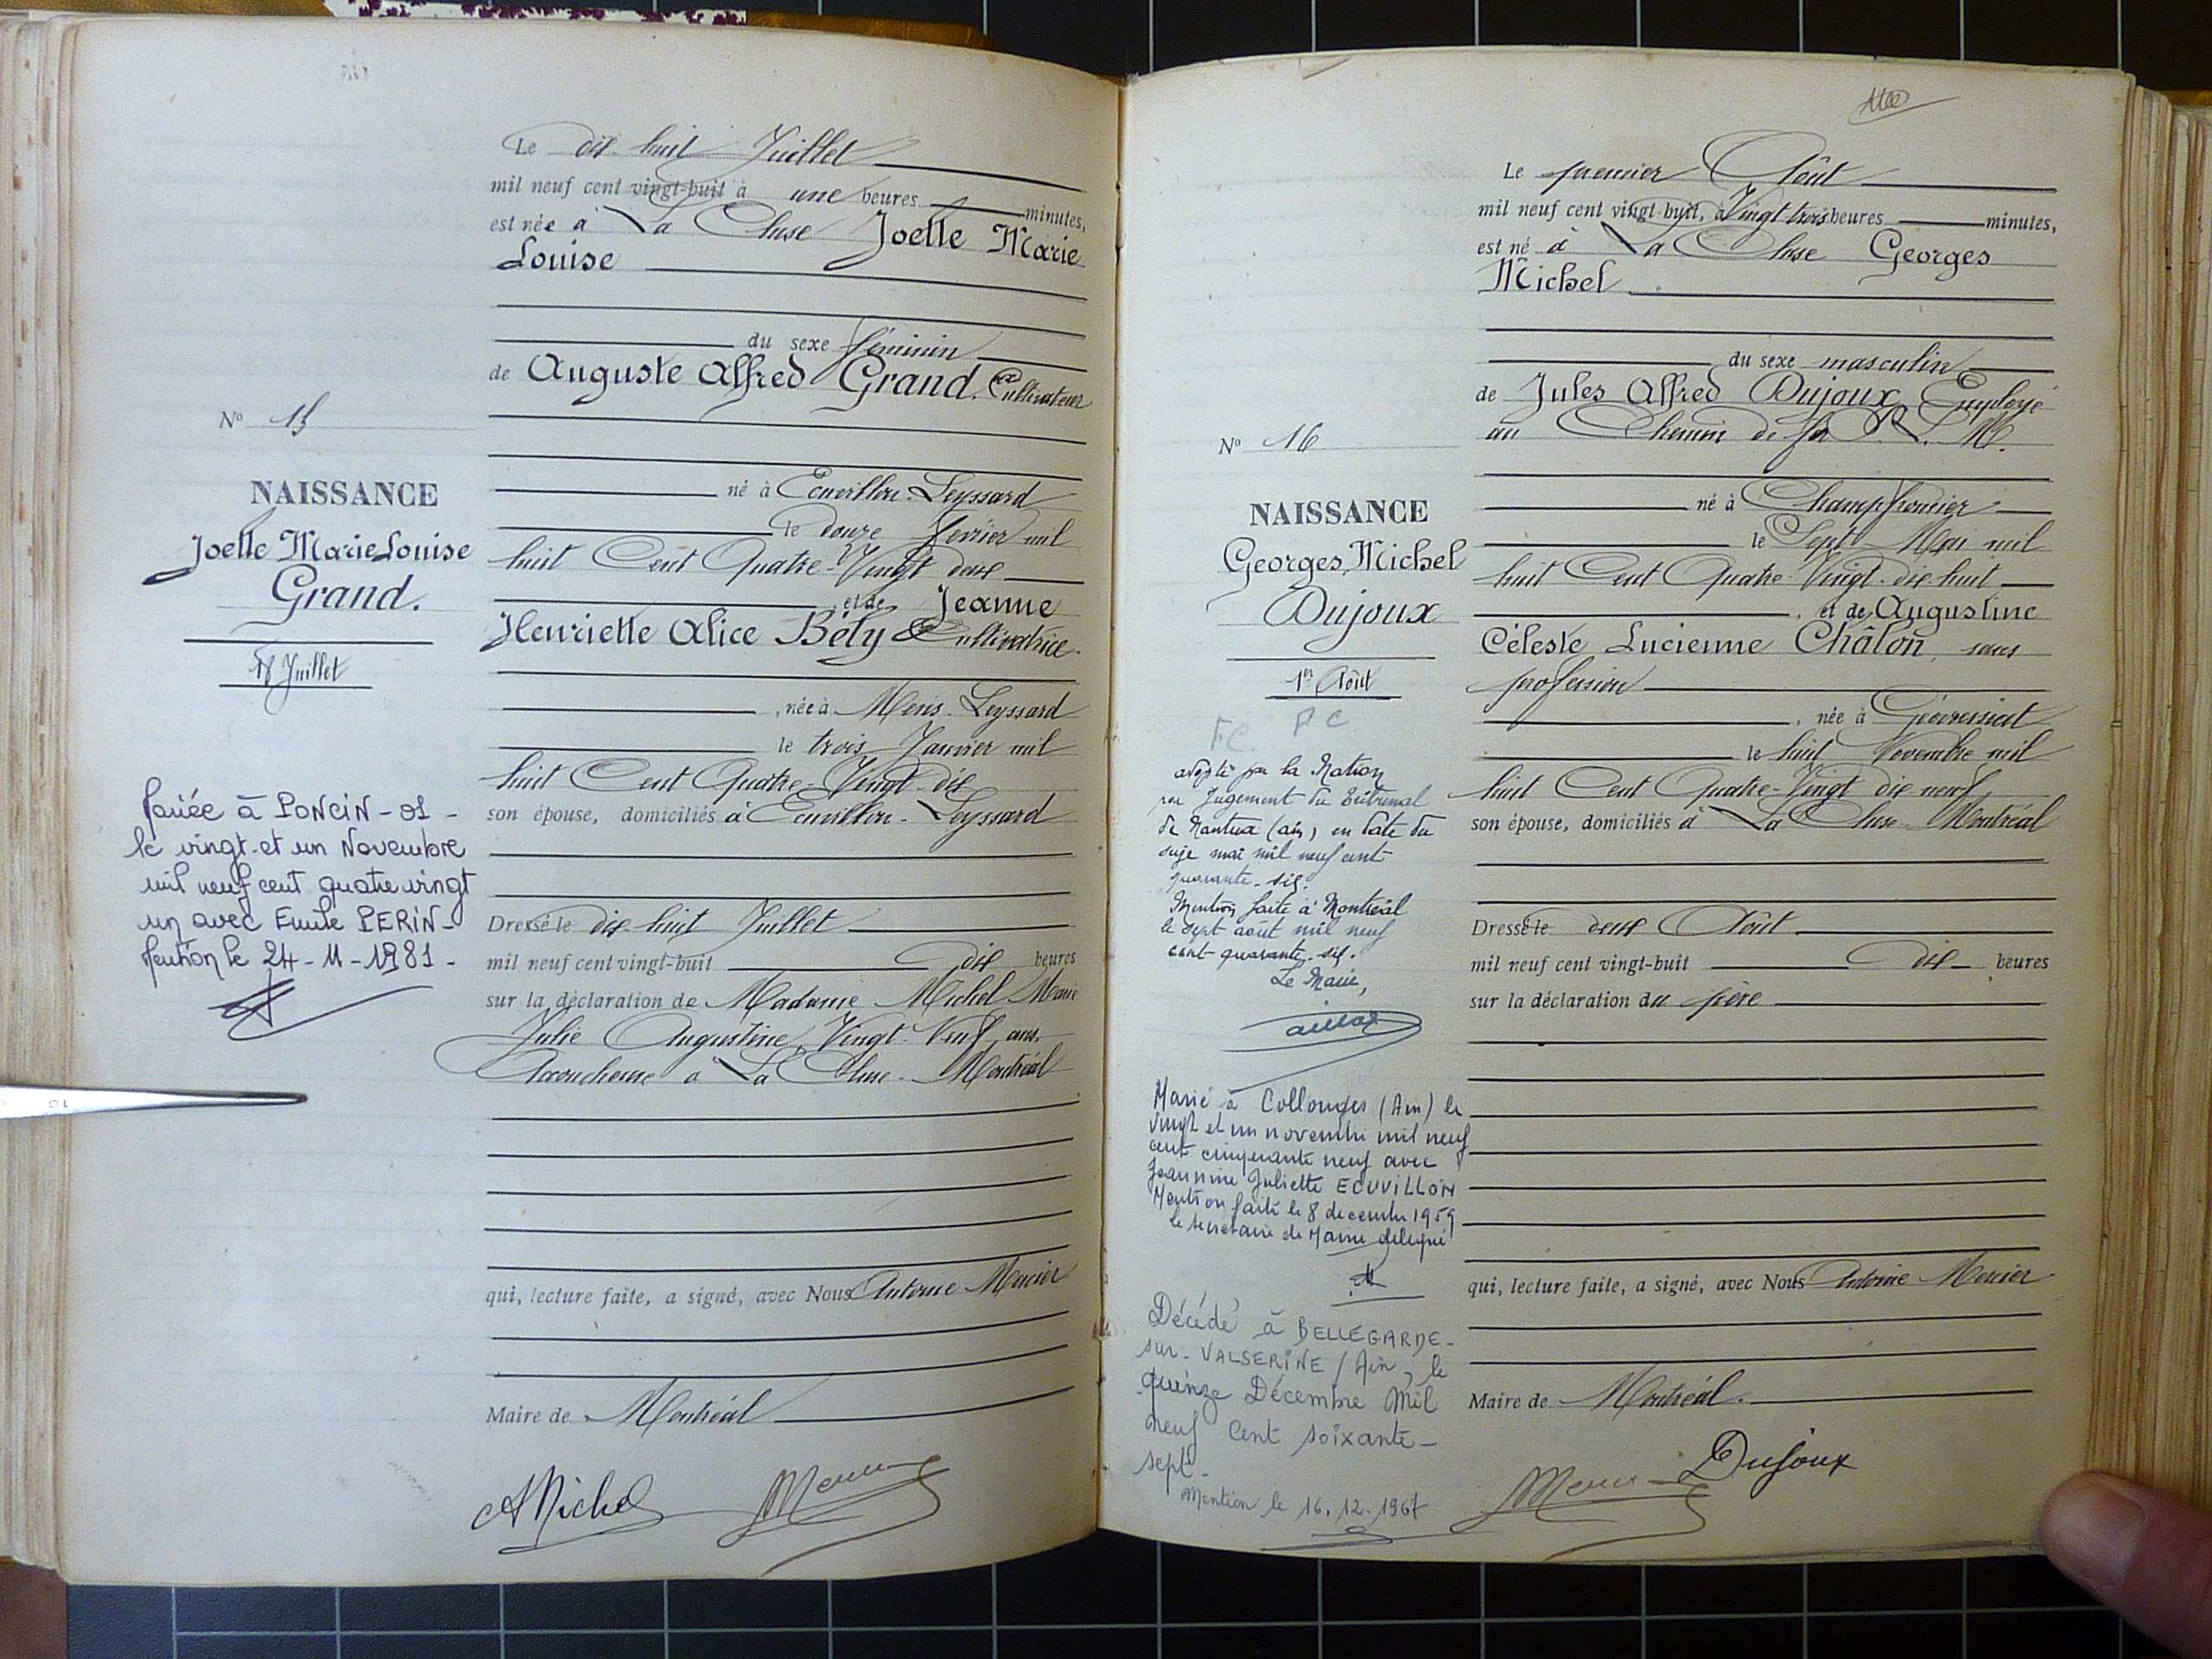 Le dix huit Juillet
mil neuf cent vingt-huit à une heures minutes,
est née à La Cluse Joelle Marie
Louise
du sexe féminin
de Auguste Alfred Grand, Cultivateur
né à Ecuvillon-Leyssard
le douze février mil
huit Cent Quatre-Vingt deux
et de Jeanne
Henriette Alice Bély Cultivatrice
, née à Mens-Leyssard
le trois Janvier mil
huit Cent Quatre-Vingt-dix
son épouse, domiciliés à Ecuvillon-Leyssard
Dressé le dix huit Juillet
mil neuf cent vingt-huit dix heures
sur la déclaration de Madame Michel Marie
Julie Augustine, Vingt-Neuf ans,
Accoucheuse à La Cluse-Montréal
qui, lecture faite, a signé, avec Nous Antoine Mercier
Maire de Montréal
AMichel
Mercier
N° 15
NAISSANCE
Joelle Marie Louise
Grand.
18 Juillet
à PONCIN-01-
le vingt-et un Novembre
mil neuf cent quatre vingt
un avec Emile PERIN-
le 24-11-1981-
Le premier Août
mil neuf cent vingt-huit, à Vingt trois heures minutes,
est né à La Cluse Georges
Michel
du sexe masculin
de Jules Alfred Dujoux, Employé
au Chemin de fer P. L. M.
né à Champfromier
le Sept Mai mil
huit Cent Quatre-Vingt-dix huit
, et de Augustine
Céleste Lucienne Châlon, sans
profession
, née à Géovressiat
le huit Novembre mil
huit Cent Quatre-Vingt dix neuf
son épouse, domiciliés à La Cluse-Montréal
Dressé le deux Août
mil neuf cent vingt-huit dix heures
sur la déclaration du père
qui, lecture faite, a signé, avec Nous Antoine Mercier
Maire de Montréal.
Mercier
Dujoux
N° 16
NAISSANCE
Georges, Michel
Dujoux
1er Août
adopté par la Nation
par Jugement du Tribunal
de Nantua (ain) en date du
onze mai mil neuf cent
quarante-six.
Mention faite à Montréal
le sept aout mil neuf
cent quarante-six.
Le Maire,
Marié à Collonges (Ain) le
vingt et un novembre mil neuf
cent cinquante neuf avec
Jeannine Juliette ECUVILLON
Mention faite le 8 decembre 1959
le secretaire de Mairie délégué
Décédé à BELLEGARDE-
sur-VALSERINE (Ain, le
quinze Décembre Mil
neuf Cent soixante-
sept-
Mention le 16.12.1967